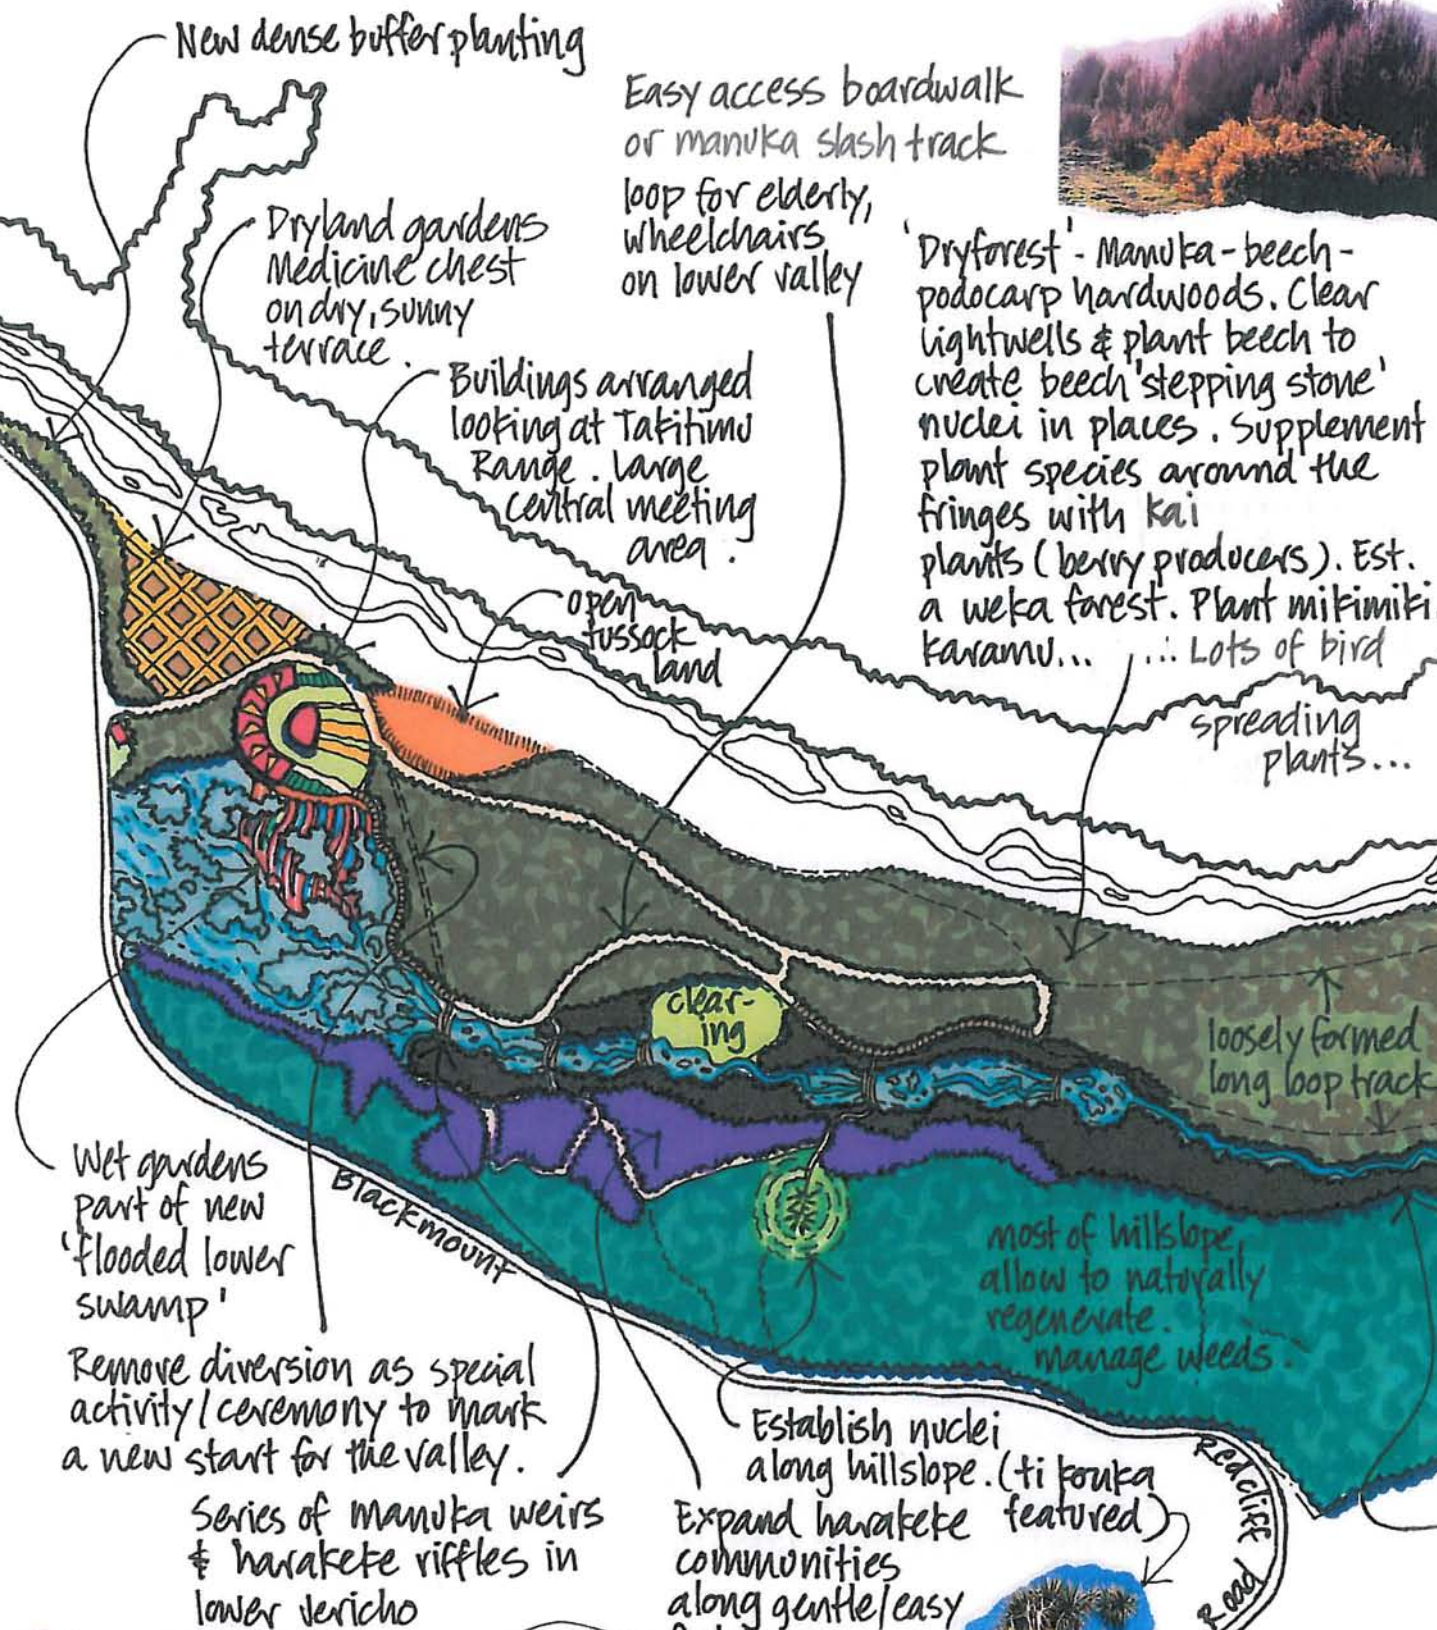 New dense buffer planting
Easy access boardwalk
or manuka slash track
loop for elderly,
wheelchairs
on lower valley
Dryland gardens
Medicine chest
on dry, sunny
terrace.
Buildings arranged
looking at Takitimu
Range. Large
central meeting
area.
'Dryforest' - Manuka - beech -
podocarp hardwoods. Clear
lightwells & plant beech to
create beech 'stepping stone'
nuclei in places. Supplement
plant species around the
fringes with kai
plants (berry producers). Est.
a weka forest. Plant mikimiki
karamu... ... Lots of bird
spreading
plants...
open
tussock
land
clear-
ing
loosely formed
long loop track
Wet gardens
part of new
'flooded lower
swamp'
Blackmount
most of hillslope
allow to naturally
regenerate.
manage weeds.
Remove diversion as special
activity/ceremony to mark
a new start for the valley.
Establish nuclei
along hillslope. (ti kouka
featured)
Redcliff
Road
Series of manuka weirs
& harakeke riffles in
lower Jericho
Expand harakeke
communities
along gentle/easy